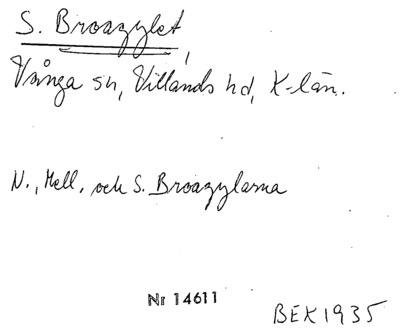 S. Broagylet,
Vånga sn, Villands hd, K-län.
N., Mell. och S. Broagylarna
Nr 14611
BEK 1935